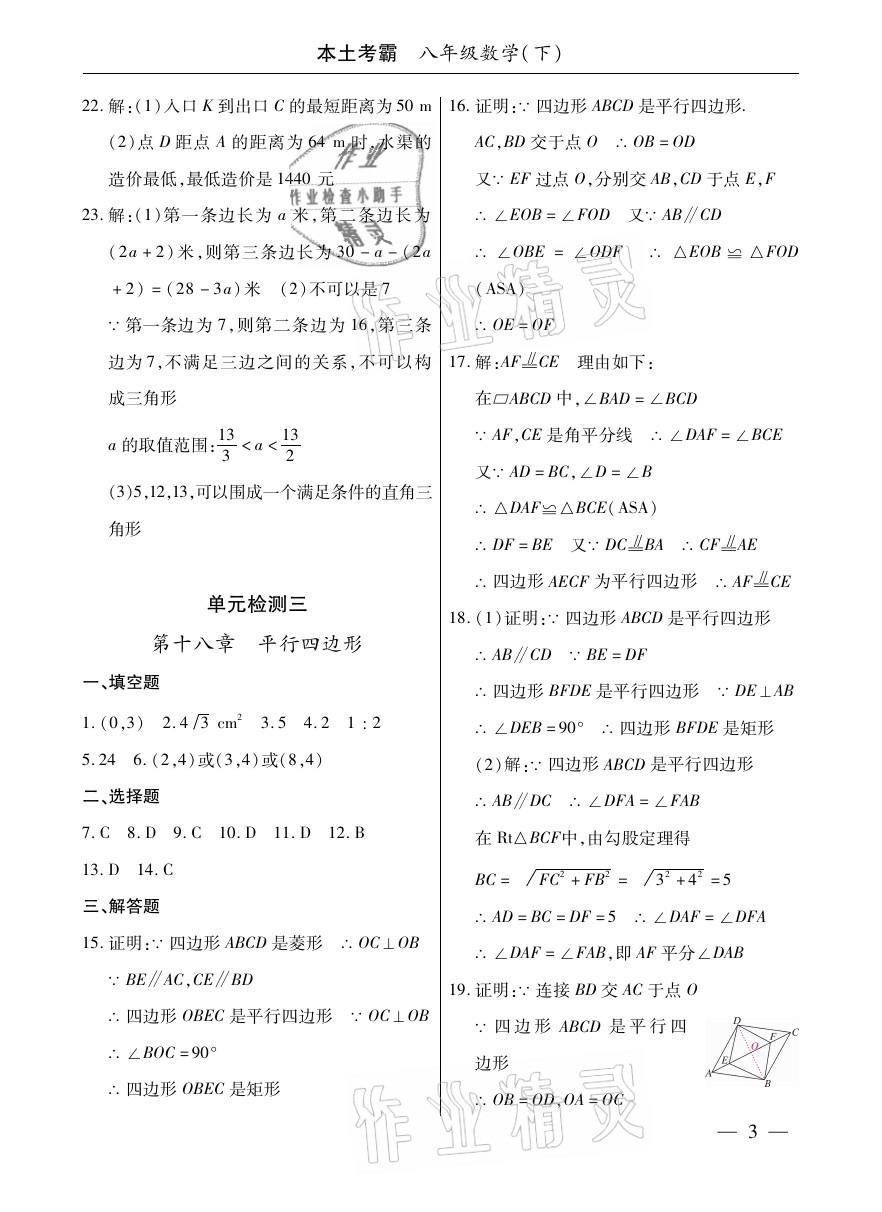 本土考霸 八年级数学(下)
22. 解:(1)入口 K 到出口 C 的最短距离为 50 m
(2)点 D 距点 A 的距离为 64 m 时,水渠的
造价最低,最低造价是 1440 元
23. 解:(1)第一条边长为 a 米,第二条边长为
(2a+2)米,则第三条边长为 30-a-(2a
+2)=(28-3a)米 (2)不可以是 7
∵ 第一条边为 7,则第二条边为 16,第三条
边为 7,不满足三边之间的关系,不可以构
成三角形
a 的取值范围:13/3<a<13/2
(3)5,12,13,可以围成一个满足条件的直角三
角形
单元检测三
第十八章 平行四边形
一、填空题
1. (0,3) 2. 4√3 cm² 3. 5 4. 2 1∶2
5. 24 6. (2,4)或(3,4)或(8,4)
二、选择题
7. C 8. D 9. C 10. D 11. D 12. B
13. D 14. C
三、解答题
15. 证明:∵ 四边形 ABCD 是菱形 ∴ OC⊥OB
∵ BE∥AC,CE∥BD
∴ 四边形 OBEC 是平行四边形 ∵ OC⊥OB
∴ ∠BOC=90°
∴ 四边形 OBEC 是矩形
16. 证明:∵ 四边形 ABCD 是平行四边形.
AC,BD 交于点 O ∴ OB=OD
又∵ EF 过点 O,分别交 AB,CD 于点 E,F
∴ ∠EOB=∠FOD 又∵ AB∥CD
∴ ∠OBE=∠ODF ∴ △EOB≌△FOD
(ASA)
∴ OE=OF
17. 解:AF⥮CE 理由如下:
在▱ABCD 中,∠BAD=∠BCD
∵ AF,CE 是角平分线 ∴ ∠DAF=∠BCE
又∵ AD=BC,∠D=∠B
∴ △DAF≌△BCE(ASA)
∴ DF=BE 又∵ DC⥮BA ∴ CF⥮AE
∴ 四边形 AECF 为平行四边形 ∴ AF⥮CE
18. (1)证明:∵ 四边形 ABCD 是平行四边形
∴ AB∥CD ∵ BE=DF
∴ 四边形 BFDE 是平行四边形 ∵ DE⊥AB
∴ ∠DEB=90° ∴ 四边形 BFDE 是矩形
(2)解:∵ 四边形 ABCD 是平行四边形
∴ AB∥DC ∴ ∠DFA=∠FAB
在 Rt△BCF中,由勾股定理得
BC=√(FC²+FB²)=√(3²+4²)=5
∴ AD=BC=DF=5 ∴ ∠DAF=∠DFA
∴ ∠DAF=∠FAB,即 AF 平分∠DAB
19. 证明:∵ 连接 BD 交 AC 于点 O
∵ 四边形 ABCD 是平行四
边形
∴ OB=OD,OA=OC
D
C
F
O
E
A
B
— 3 —
作业
作业检查小助手
精灵
作业精灵
作业精灵